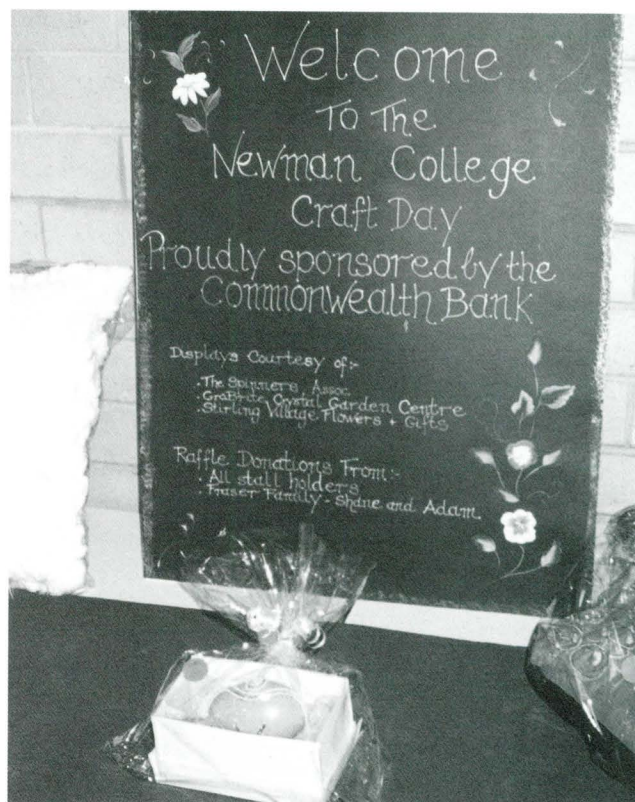 Welcome
To The
Newman College
Craft Day
Proudly sponsored by the
Commonwealth Bank
Displays Courtesy of:-
. The Spinners Assoc.
. Crystal Garden Centre
. Stirling Village Flowers + Gifts
Raffle Donations From:-
. All stall holders
. Fraser Family - Shane and Adam